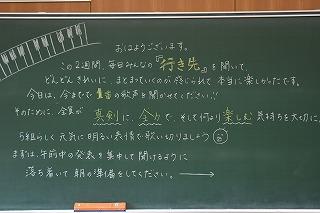 おはようございます。
この2週間、毎日みんなの『行き先』を聞いて、
どんどんきれいに、まとまっていくのが感じられて本当に楽しかったです。
今日は、今までで最高の歌声を聞かせてください!!
そのために、全員が真剣に、全力で、そして何より楽しむ気持ちを大切に、
5組らしく元気に明るい表情で歌い切りましょう
まずは、午前中の発表を集中して聞けるように
落ち着いて朝の準備をしてください。→